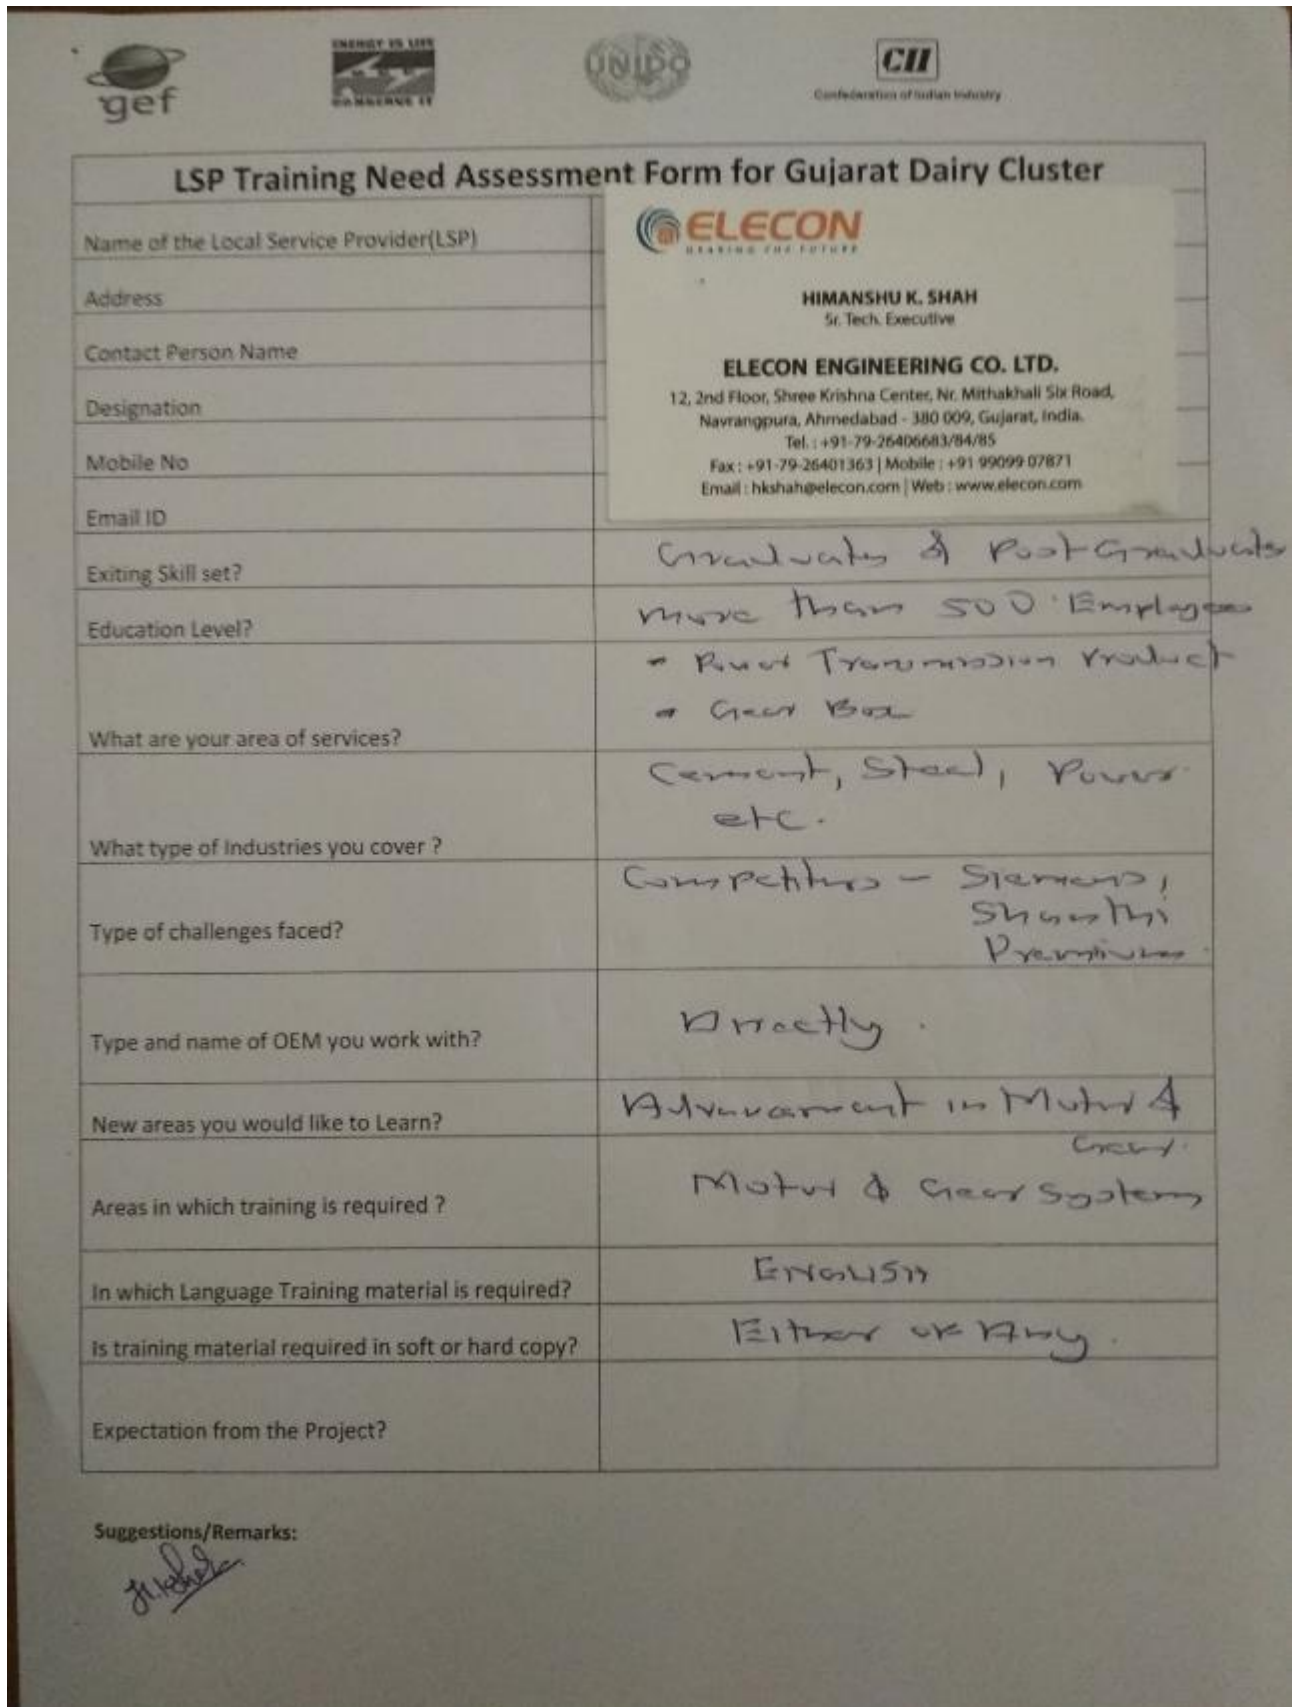 gef
ENERGY IS LIFE
CONSERVE IT
UNIDO
CII
Confederation of Indian Industry
LSP Training Need Assessment Form for Gujarat Dairy Cluster
Name of the Local Service Provider(LSP)
Address
Contact Person Name
Designation
Mobile No
Email ID
ELECON
GEARING THE FUTURE
HIMANSHU K. SHAH
Sr. Tech. Executive
ELECON ENGINEERING CO. LTD.
12, 2nd Floor, Shree Krishna Center, Nr. Mithakhali Six Road,
Navrangpura, Ahmedabad - 380 009, Gujarat, India.
Tel. : +91-79-26406683/84/85
Fax : +91-79-26401363 | Mobile : +91 99099 07871
Email : hkshah@elecon.com | Web : www.elecon.com
Exiting Skill set? Graduates & Post Graduates
Education Level? more than 500 Employees
- Power Transmission Product
- Gear Box
What are your area of services?
Cement, Steel, Power
etc.
What type of Industries you cover ?
Competitors - Siemens,
Type of challenges faced? Shanthi
Premium
Type and name of OEM you work with? Directly.
New areas you would like to Learn? Advancement in Motor &
Gear.
Areas in which training is required ? Motor & Gear Systems
In which Language Training material is required? ENGLISH
Is training material required in soft or hard copy? Either or Any.
Expectation from the Project?
Suggestions/Remarks: